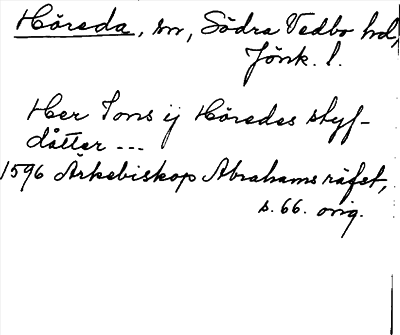 Höreda, sn, Södra Vedbo hd,
Jönk. l.
Her Jons ij Höredes styf-
dåtter ---
1596 Ärkebiskop Abrahams räfst,
s. 66. orig.